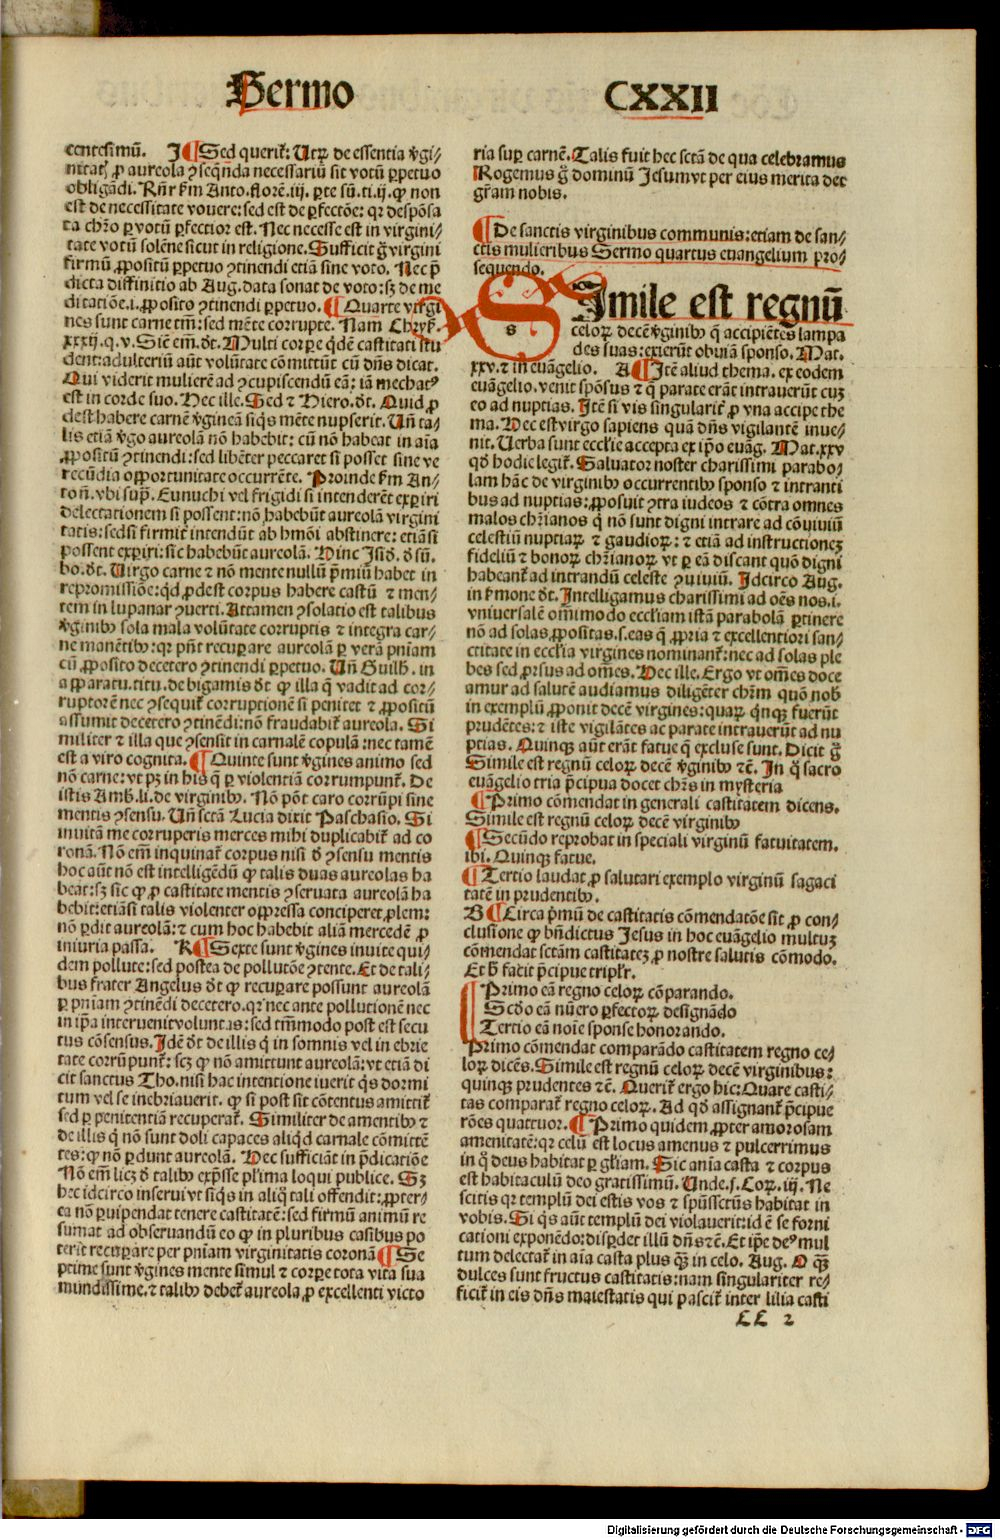 Sermo
CXXII
centesimū. I ¶ Sed querit̃: Utꝝ de essentia ṽgi/
nitatꝭ ꝓ aureola ⁊ ɔseqnda necessariū sit votū ꝑpetuo
obligādi. Rñr ẜm Anto. florē. iij. ꝑte sū. ti. ij. ꝙ non
est de necessitate vouere: sed est de ꝑfectōe: qꝛ despōsa
ta chr̄o ꝑ votū ꝑfectior est. Nec necesse est in virgini/
tate votū solēne sicut in religione. Sufficit g̃ virgini
firmū ꝓpositū ꝑpetuo ɔtinendi etiā sine voto. Nec p̄
dicta diffinitio ab Aug. data sonat de voto: sꝫ de me
ditatiōe .i. ꝓposito ɔtinendi ꝑpetuo. ¶ Quarte virgi
nes sunt carne tm̄: sed mēte corrupte. Nam Chrys̄.
xxxij. q. v. Sic em̄. d̄t. Multi corꝑe qdē castitati stu
dent: adulteriū aūt volūtate cōmittūt cū dn̄s dicat.
Qui viderit mulierē ad ɔcupiscendū eā: iā mechatꝰ
est in corde suo. Hec ille. Sed ⁊ Hiero. d̄t. Quid ꝓ
dest habere carnē ṽginēa siqs mēte nupserit. Uñ ta/
lis etiā ṽgo aureolā nō habebit: cū nō habeat in aīa
ꝓpositū ɔtinendi: sed libēter peccaret si posset sine ve
recūdia opportunitate occurrēte. Proinde ẜm An/
toñ. vbi supͣ. Eunuchi vel frigidi si intenderēt exꝑiri
delectationem si possent: nō habebūt aureolā virgini
tatis: sed si firmit̃ intendūt ab hmōi abstinere: etiā si
possent exꝑiri: sic habebūt aureolā. Hinc Isid. d̄ sū.
bo. d̄t. Virgo carne ⁊ nō mente nullū p̄miū habet in
repromissiōe: qd ꝓdest corpus habere castū ⁊ men/
tem in lupanar ɔuerti. Attamen ɔsolatio est talibus
ṽginibꝰ sola mala volūtate corruptis ⁊ integra car/
ne manētibꝰ: qꝛ pn̄t recuꝑare aureolā ꝑ verā pn̄iam
cū ꝓposito decetero ɔtinendi ꝑpetuo. Uñ Guilh. in
apparatu. titu. de bigamis d̄t ꝙ illa q̄ vadit ad cor/
ruptorē nec ɔsequit̃ corruptionē si penitet ⁊ ꝓpositū
assumit decetero ɔtinēdi: nō fraudabit̃ aureola. Si
militer ⁊ illa que ɔsensit in carnalē copulā: nec tamē
est a viro cognita. ¶ Quinte sunt ṽgines animo sed
nō carne: vt pꝫ in his q̄ ꝑ violentiā corrumpunt̃. De
istis Amb. li. de virginibꝰ. Nō pōt caro corrūpi sine
mentis ɔsensu. Uñ sctā Lucia dixit Paschasio. Si
inuitā me corruperis merces mihi duplicabit̃ ad co
ronā. Nō em̄ inquinat̃ corpus nisi d̄ ɔsensu mentis
hoc aūt nō est intelligēdū ꝙ talis duas aureolas ha
beat: sꝫ sic ꝙ ꝓ castitate mentis ɔseruata aureolā ha
bebit: etiāsi talis violenter oppressa conciperet ꝓlem:
nō ꝑdit aureolā: ⁊ cum hoc habebit aliā mercedē ꝓ
iniuria passa. K ¶ Sexte sunt ṽgines inuite qui/
dem pollute: sed postea de pollutōe ɔtente. Et de tali/
bus frater Angelus d̄t ꝙ recuꝑare possunt aureolā
ꝑ pn̄iam ɔtinēdi decetero. qꝛ nec ante pollutionē nec
in ip̄a interuenit voluntas: sed tm̄modo post est secu
tus cōsensus. Idē d̄t de illis q̄ in somnis vel in ebrie
tate corrūpunt̃: scꝫ ꝙ nō amittunt aureolā: vt etiā di
cit sanctus Tho. nisi hac intentione iuerit qs dormi
tum vel se inebriauerit. ꝙ si post sit cōtentus amittit̃
sed ꝑ penitentiā recuperat̃. Similiter de amentibꝰ ⁊
de illis q̄ nō sunt doli capaces aliqd carnale cōmittē
tes: ꝙ nō ꝑdunt aureolā. Hec sufficiāt in p̄dicatiōe
Nō em̄ licꝫ d̄ talibꝰ exp̄sse pl'ima loqui publice. Sꝫ
hec idcirco inserui vt siqs in aliq̄ tali offendit: ꝓpter/
ea nō ꝑuipendat tenere castitatē: sed firmū animū re
sumat ad obseruandū eo ꝙ in pluribus casibus po
terit recuꝑare per pn̄iam virginitatis coronā ¶ Se
ptime sunt ṽgines mente simul ⁊ corꝑe tota vita sua
mundissime. ⁊ talibꝰ debet̃ aureola ꝓ excellenti victo
ria suꝑ carnē. Talis fuit hec sctā de qua celebramus
Rogemus g̃ dominū Jesum vt per eius merita det
gr̄am nobis.
¶ De sanctis virginibus communis: etiam de san/
ctis mulieribus Sermo quartus euangelium pro/
sequendo.
Simile est regnū
celoꝝ decē ṽginibꝰ q̄ accipiētes lampa
des suas: exierūt obuiā sponso. Mat.
xxv. ⁊ in euāgelio. A ¶ Itē aliud thema. ex eodem
euāgelio. venit spōsus ⁊ q̄ parate erāt intrauerūt cuꝫ
eo ad nuptias. Itē si vis singularit̃ ꝓ vna accipe the
ma. Hec est virgo sapiens quā dn̄s vigilantē inue/
nit. Verba sunt eccl'ie accepta ex ip̄o euāg. Mat. xxv
qd hodie legit̃. Saluator noster charissimi parabo/
lam hāc de virginibꝰ occurrentibꝰ sponso ⁊ intranti
bus ad nuptias: ꝓposuit ɔtra iudeos ⁊ cōtra omnes
malos chr̄ianos q̄ nō sunt digni intrare ad cōuiuiū
celestiū nuptiaꝝ ⁊ gaudioꝝ: ⁊ etiā ad instructioneꝫ
fideliū ⁊ bonoꝝ chr̄ianoꝝ vt ꝑ eā discant quō digni
habeant̃ ad intrandū celeste ɔuiuiū. Idcirco Aug.
in ẜmone d̄t. Intelligamus charissimi ad oēs nos .i.
vniuersalē om̄imodo eccl'iam istā parabolā ꝑtinere
nō ad solas ꝓpositas .s. eas q̄ ꝓpria ⁊ excellentiori san/
ctitate in eccl'ia virgines nominant̃: nec ad solas ple
bes sed ꝓrsus ad om̄es. Hec ille. Ergo vt om̄es doce
amur ad salutē audiamus diligēter chr̄m quō nob̄
in exemplū ꝓponit decē virgines: quaꝝ q̄nqꝫ fuerūt
prudētes: ⁊ iste vigilātes ac parate intrauerūt ad nu
ptias. Quinqꝫ aūt erāt fatue q̄ excluse sunt. Dicit g̃
Simile est regnū celoꝝ decē ṽginibꝰ ⁊c̄. In q̄ sacro
euāgelio tria p̄cipua docet chr̄s in mysteria
¶ Primo cōmendat in generali castitatem dicens.
Simile est regnū celoꝝ decē virginibꝰ
¶ Secūdo reprobat in speciali virginū fatuitatem.
ibi. Quinqꝫ fatue.
¶ Tertio laudat ꝓ salutari exemplo virginū sagaci
tatē in prudentibꝰ.
B ¶ Circa p̄mū de castitatis cōmendatōe sit ꝓ con/
clusione ꝙ bn̄dictus Jesus in hoc euāgelio multuꝫ
cōmendat sctām castitateꝫ ꝓ nostre salutis cōmodo.
Et h̄ facit p̄cipue tripl'r.
Primo eā regno celoꝝ cōparando.
Scd̄o eā nūero ꝑfectoꝝ designādo
Tertio eā noīe sponse honorando.
Primo cōmendat comparādo castitatem regno ce/
loꝝ dicēs. Simile est regnū celoꝝ decē virginibus:
quinqꝫ prudentes ⁊c̄. Querit̃ ergo hic: Quare casti/
tas comparat̃ regno celoꝝ. Ad qd assignant̃ p̄cipue
rōes quattuor. ¶ Primo quidem ꝓpter amorosam
amenitatē: qꝛ celū est locus amenus ⁊ pulcerrimus
in q̄ deus habitat ꝑ gl'iam. Sic anīa casta ⁊ corpus
est habitaculū deo gratissimū. Unde .j. Coꝝ. iij. Ne
scitis qꝛ templū dei estis vos ⁊ spūssctūs habitat in
vobis. Si qs aūt templū dei violauerit: id ē se forni
cationi exponēdo: disꝑdet illū dn̄s ⁊c̄. Et ip̄e deꝰ mul
tum delectat̃ in aīa casta plus qꝫ̄ in celo. Aug. O qꝫ̄
dulces sunt fructus castitatis: nam singulariter re/
ficit̃ in eis dn̄s maiestatis qui pascit̃ inter lilia casti
LL 2
Digitalisierung gefördert durch die Deutsche Forschungsgemeinschaft - DFG